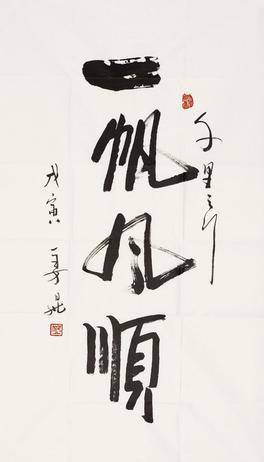 千里之行
一帆风順
戊寅